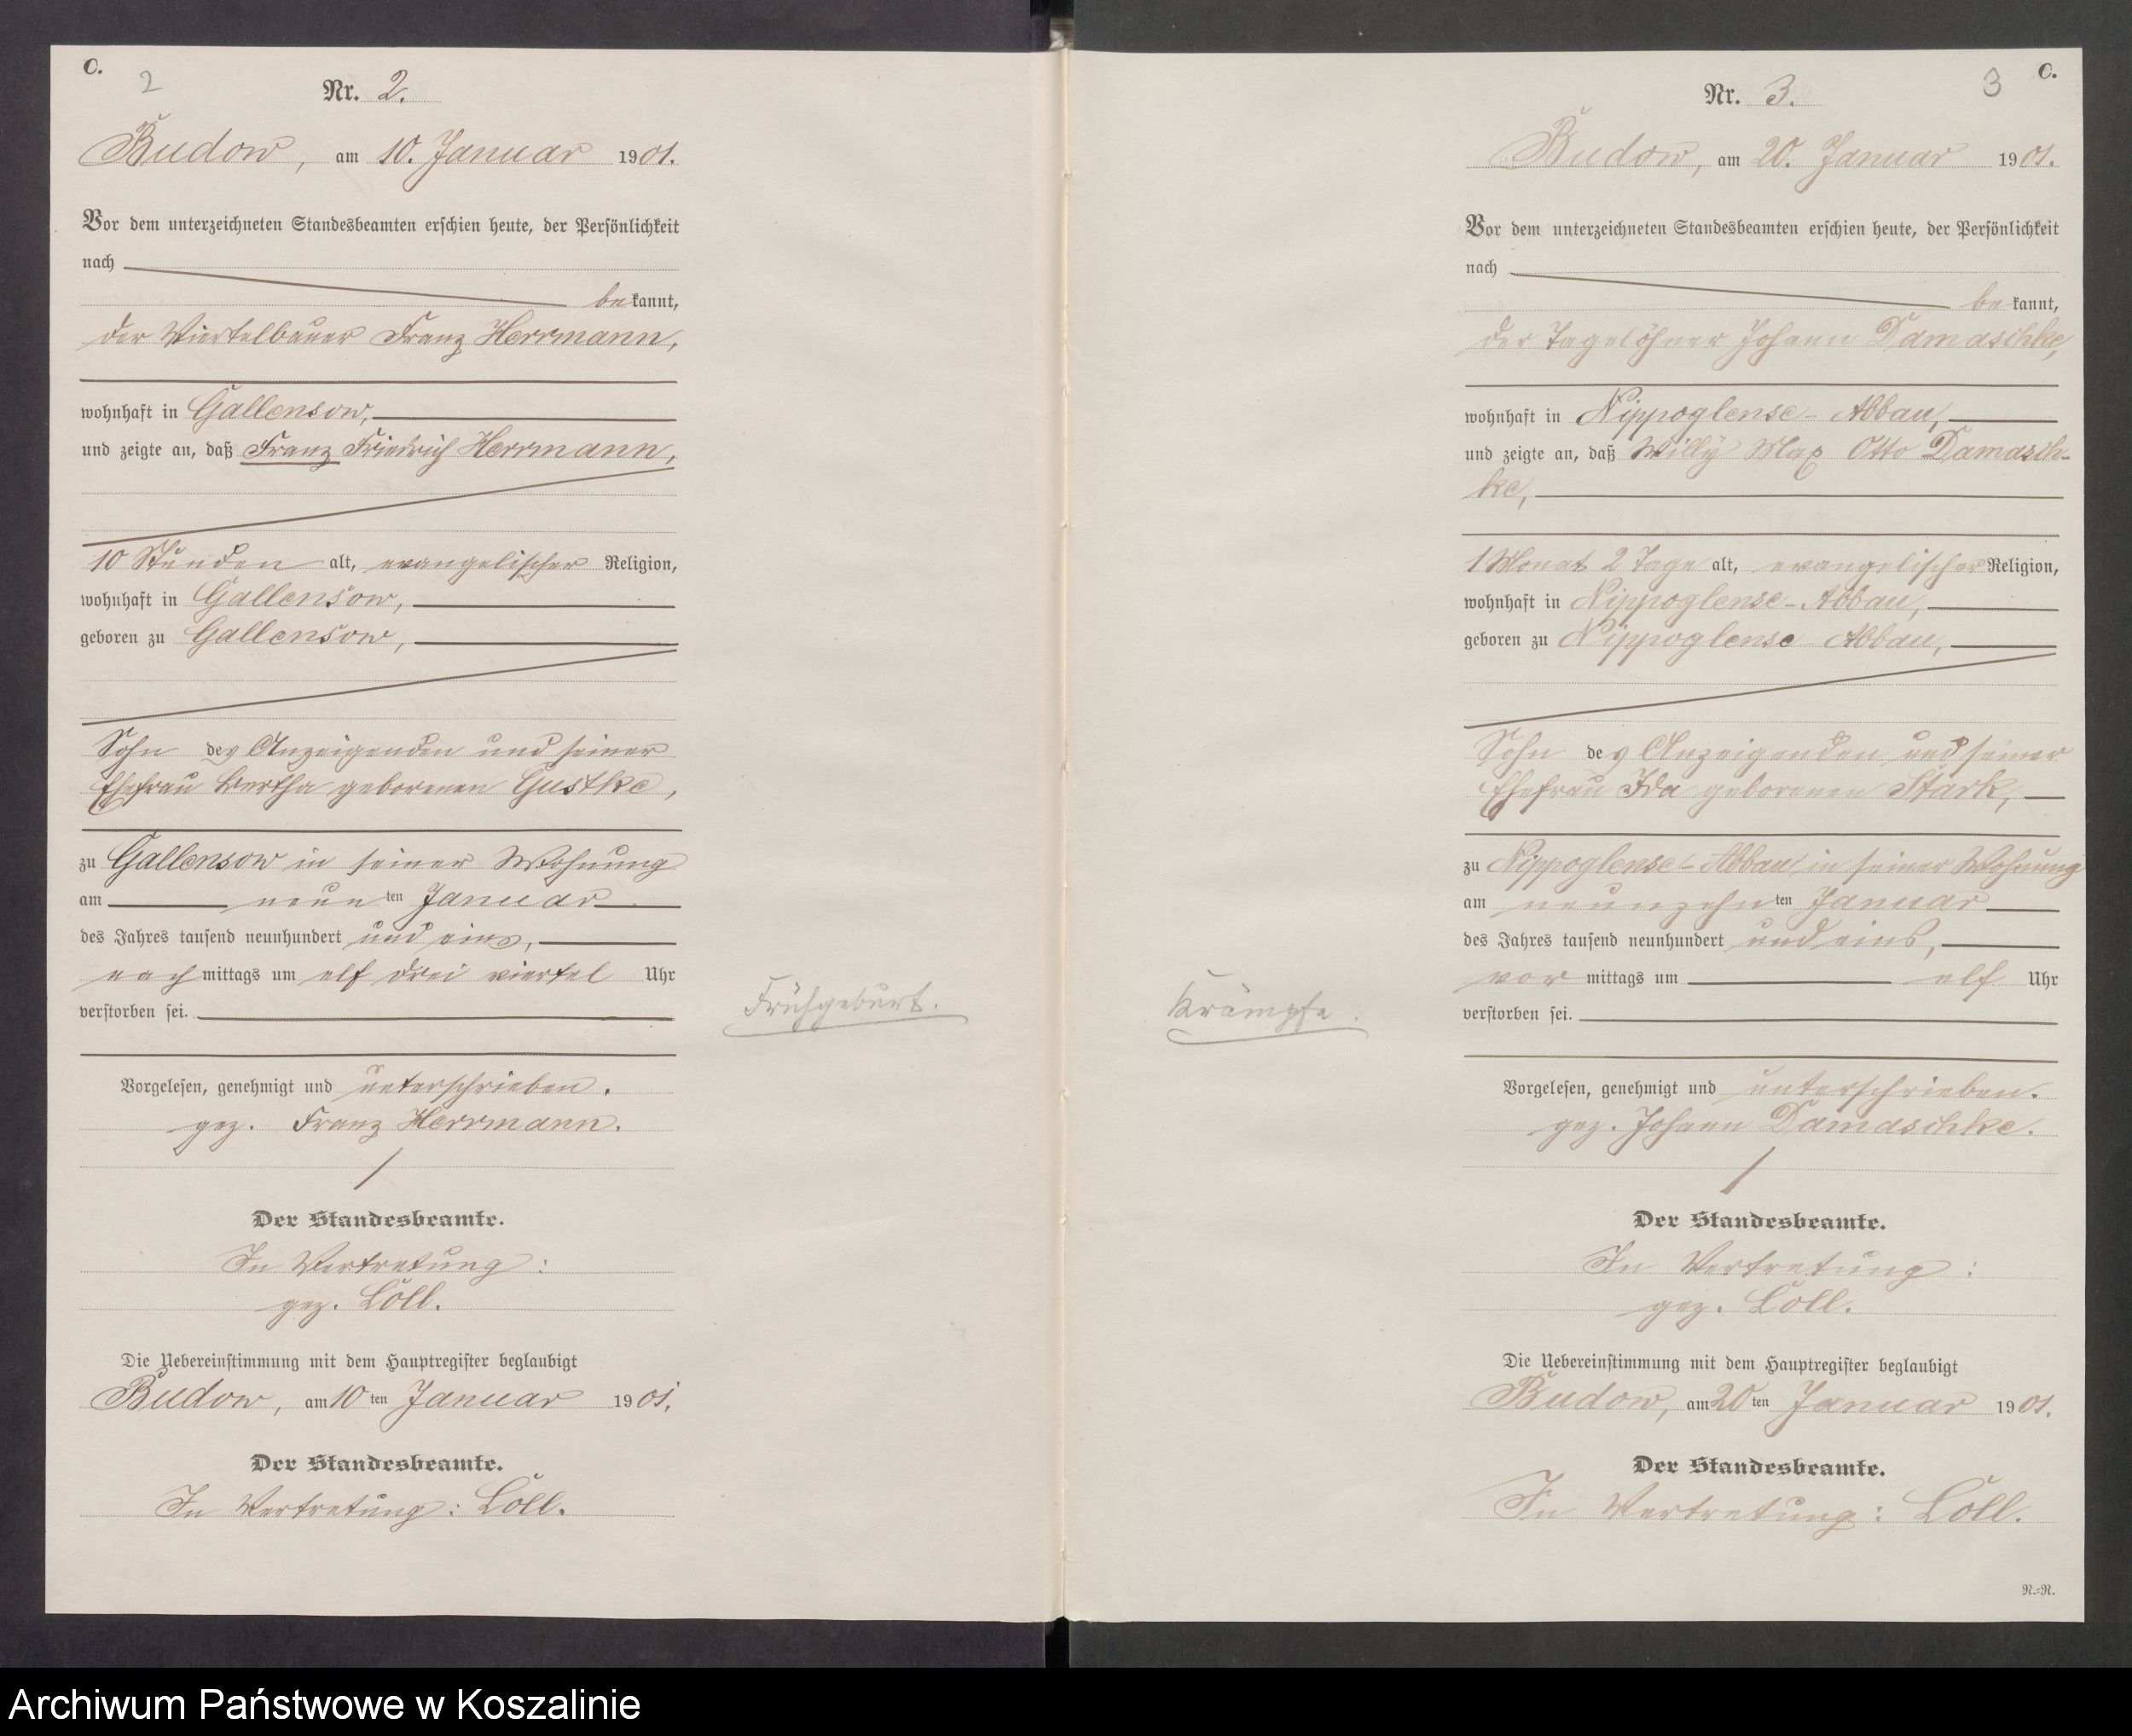 C.
2
Nr. 2.
Budow, am 10. Januar 1901.
Vor dem unterzeichneten Standesbeamten erschien heute, der Persönlichkeit
nach
bekannt,
der Viertelbauer Franz Herrmann,
wohnhaft in Gallensow,
und zeigte an, daß Franz Friedrich Herrmann,
10 Stunden alt, evangelischer Religion,
wohnhaft in Gallensow,
geboren zu Gallensow,
Sohn des Anzeigenden und seiner
Ehefrau Bertha geborenen Gustke,
zu Gallensow in seiner Wohnung
am neunten Januar
des Jahres tausend neunhundert und eins,
nachmittags um elf drei viertel Uhr
verstorben sei.
Frühgeburt.
Vorgelesen, genehmigt und unterschrieben.
gez. Franz Herrmann.
Der Standesbeamte.
In Vertretung:
gez. Löll.
Die Uebereinstimmung mit dem Hauptregister beglaubigt
Budow, am 10ten Januar 1901.
Der Standesbeamte.
In Vertretung: Löll.
C.
3
Nr. 3.
Budow, am 20. Januar 1901.
Vor dem unterzeichneten Standesbeamten erschien heute, der Persönlichkeit
nach
bekannt,
der Tagelöhner Johann Damaschke,
wohnhaft in Nippoglense-Abbau,
und zeigte an, daß Willy Max Otto Damasch-
ke,
1 Monat 2 Tage alt, evangelischer Religion,
wohnhaft in Nippoglense-Abbau,
geboren zu Nippoglense-Abbau,
Sohn des Anzeigenden und seiner
Ehefrau Ida geborenen Stark,
zu Nippoglense-Abbau in seiner Wohnung
am neunzehnten Januar
des Jahres tausend neunhundert und eins,
vormittags um elf Uhr
verstorben sei.
Krämpfe.
Vorgelesen, genehmigt und unterschrieben.
gez. Johann Damaschke.
Der Standesbeamte.
In Vertretung:
gez. Löll.
Die Uebereinstimmung mit dem Hauptregister beglaubigt
Budow, am 20ten Januar 1901.
Der Standesbeamte.
In Vertretung: Löll.
N.=N.
Archiwum Państwowe w Koszalinie